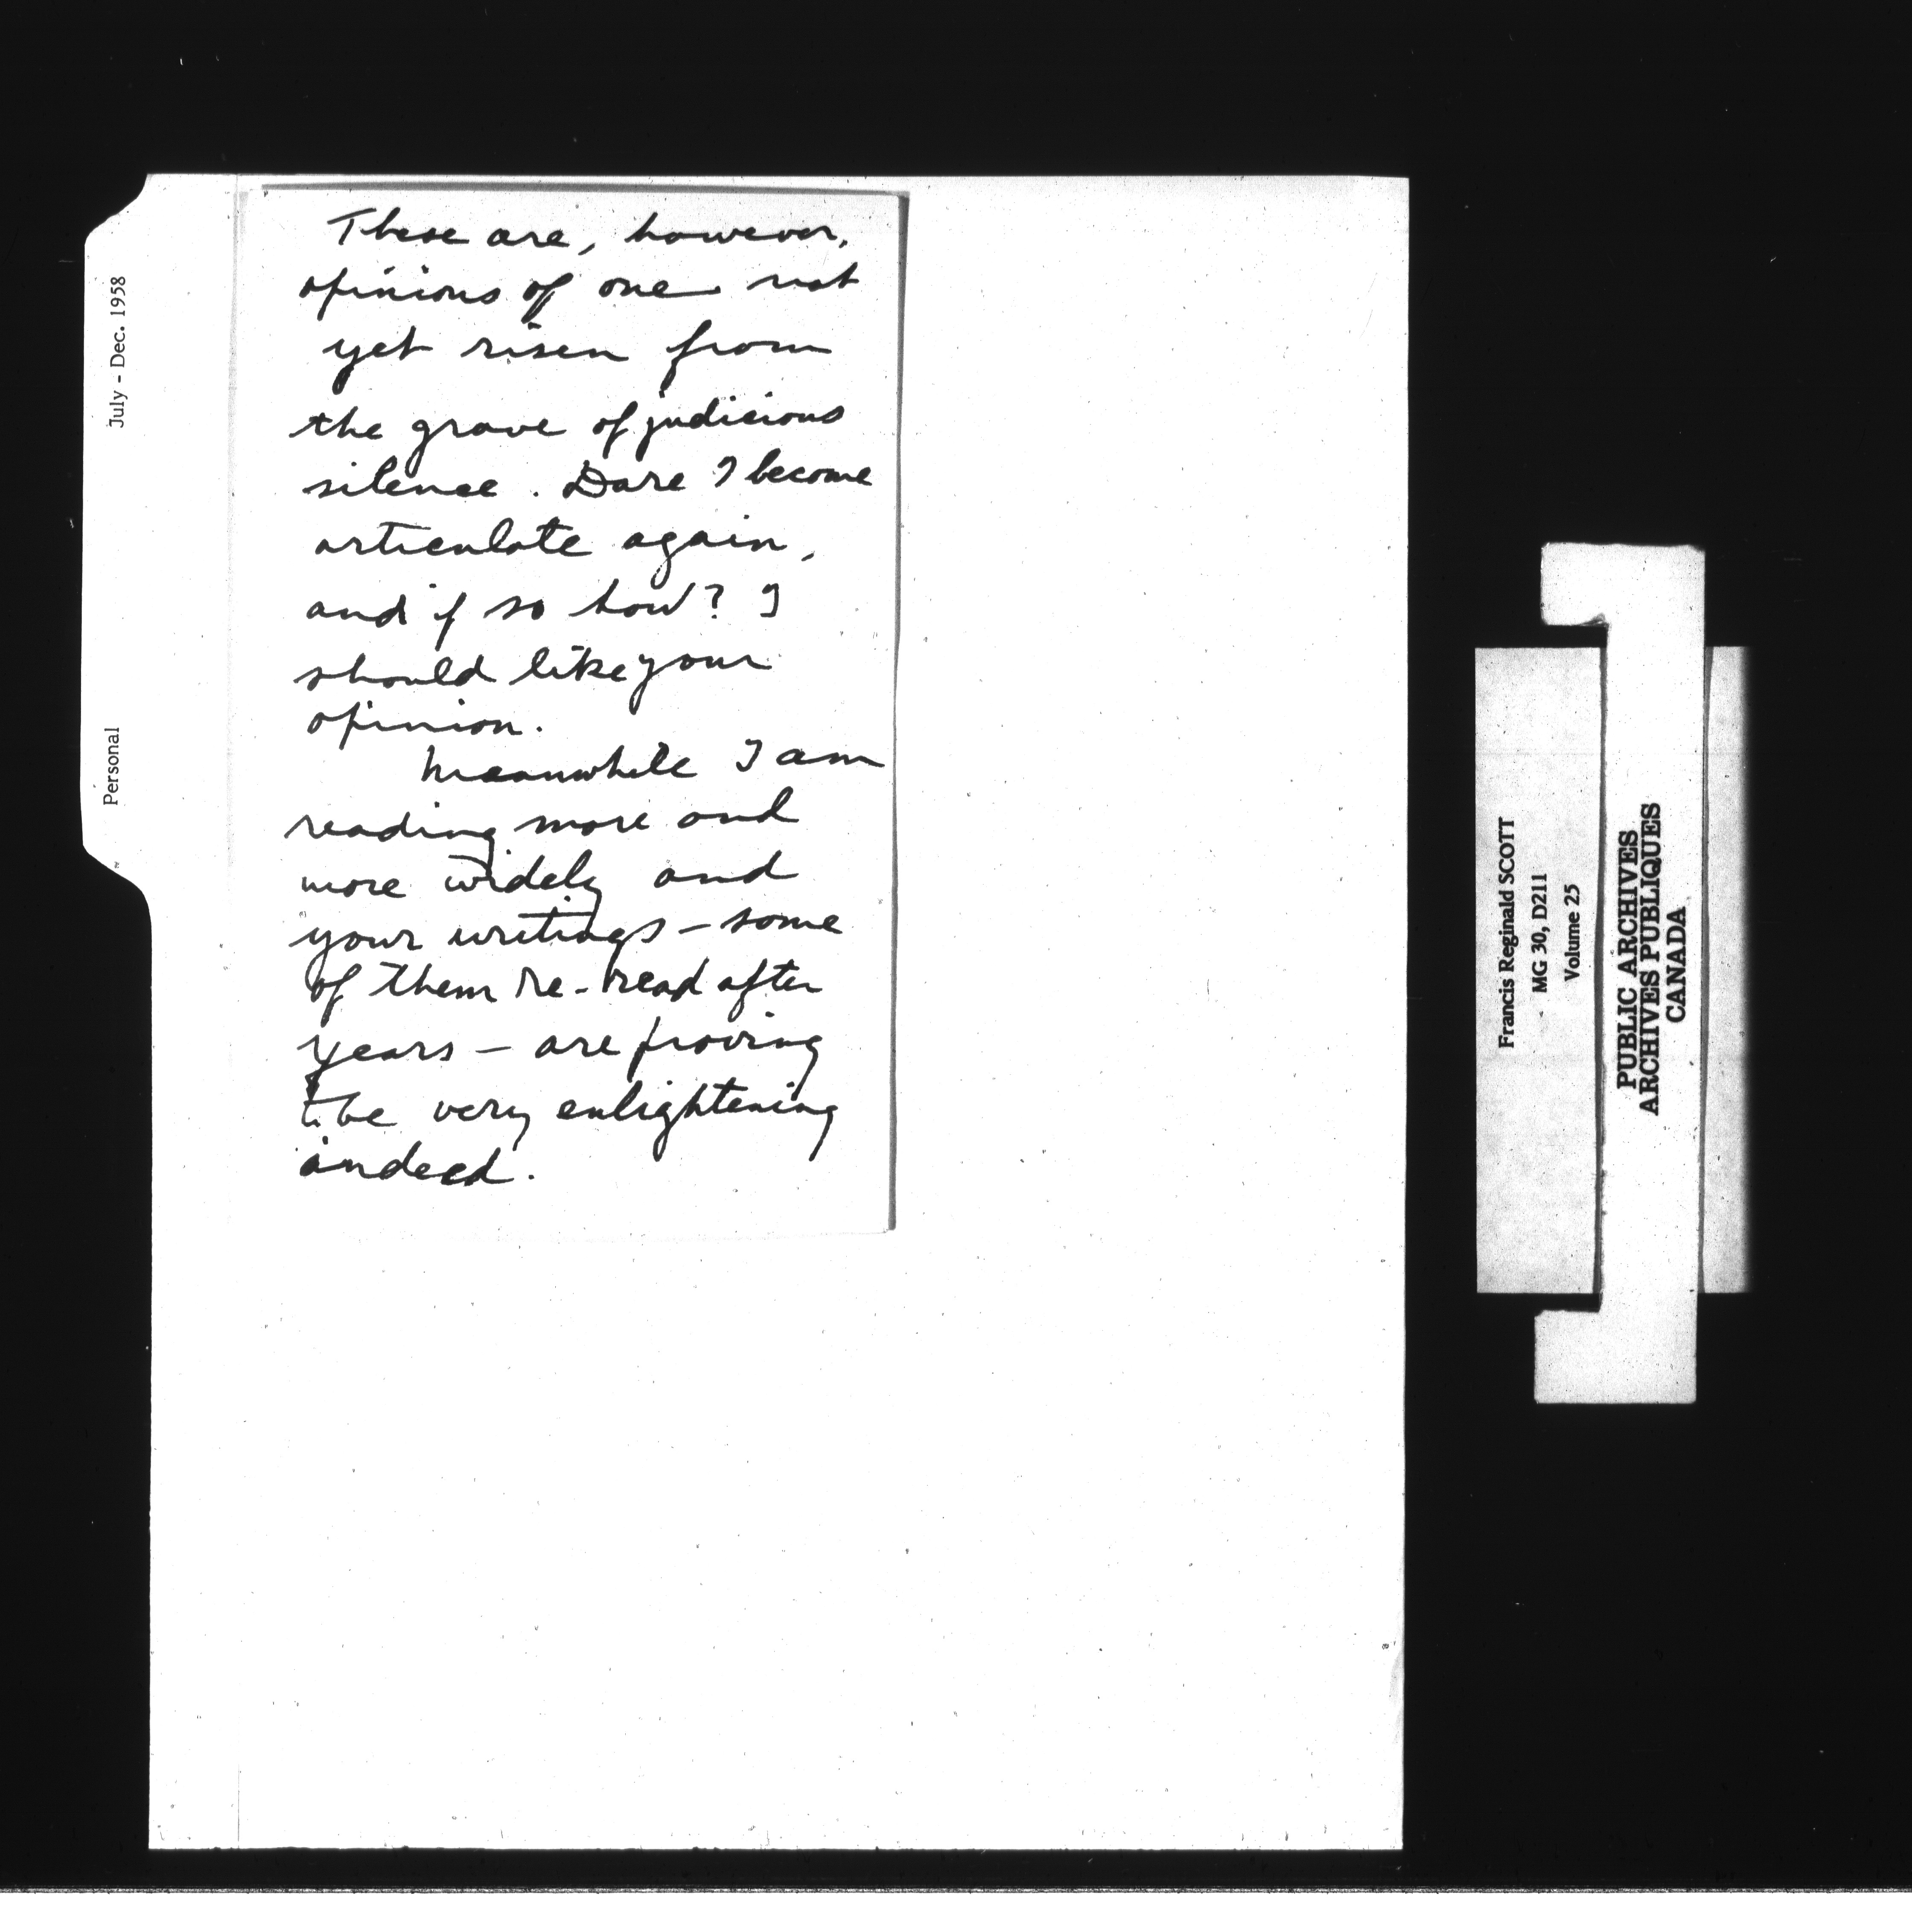 These are, however,
opinions of one not
yet risen from
the grave of judicious
silence. Dare I become
articulate again,
and if so how? I
should like your
opinion.
Meanwhile I am
reading more and
more widely and
your writings - some
of them re-read after
years - are proving
to be very enlightening
indeed.
July - Dec. 1958
Personal
Francis Reginald SCOTT
MG 30, D211
Volume 25
PUBLIC ARCHIVES
ARCHIVES PUBLIQUES
CANADA